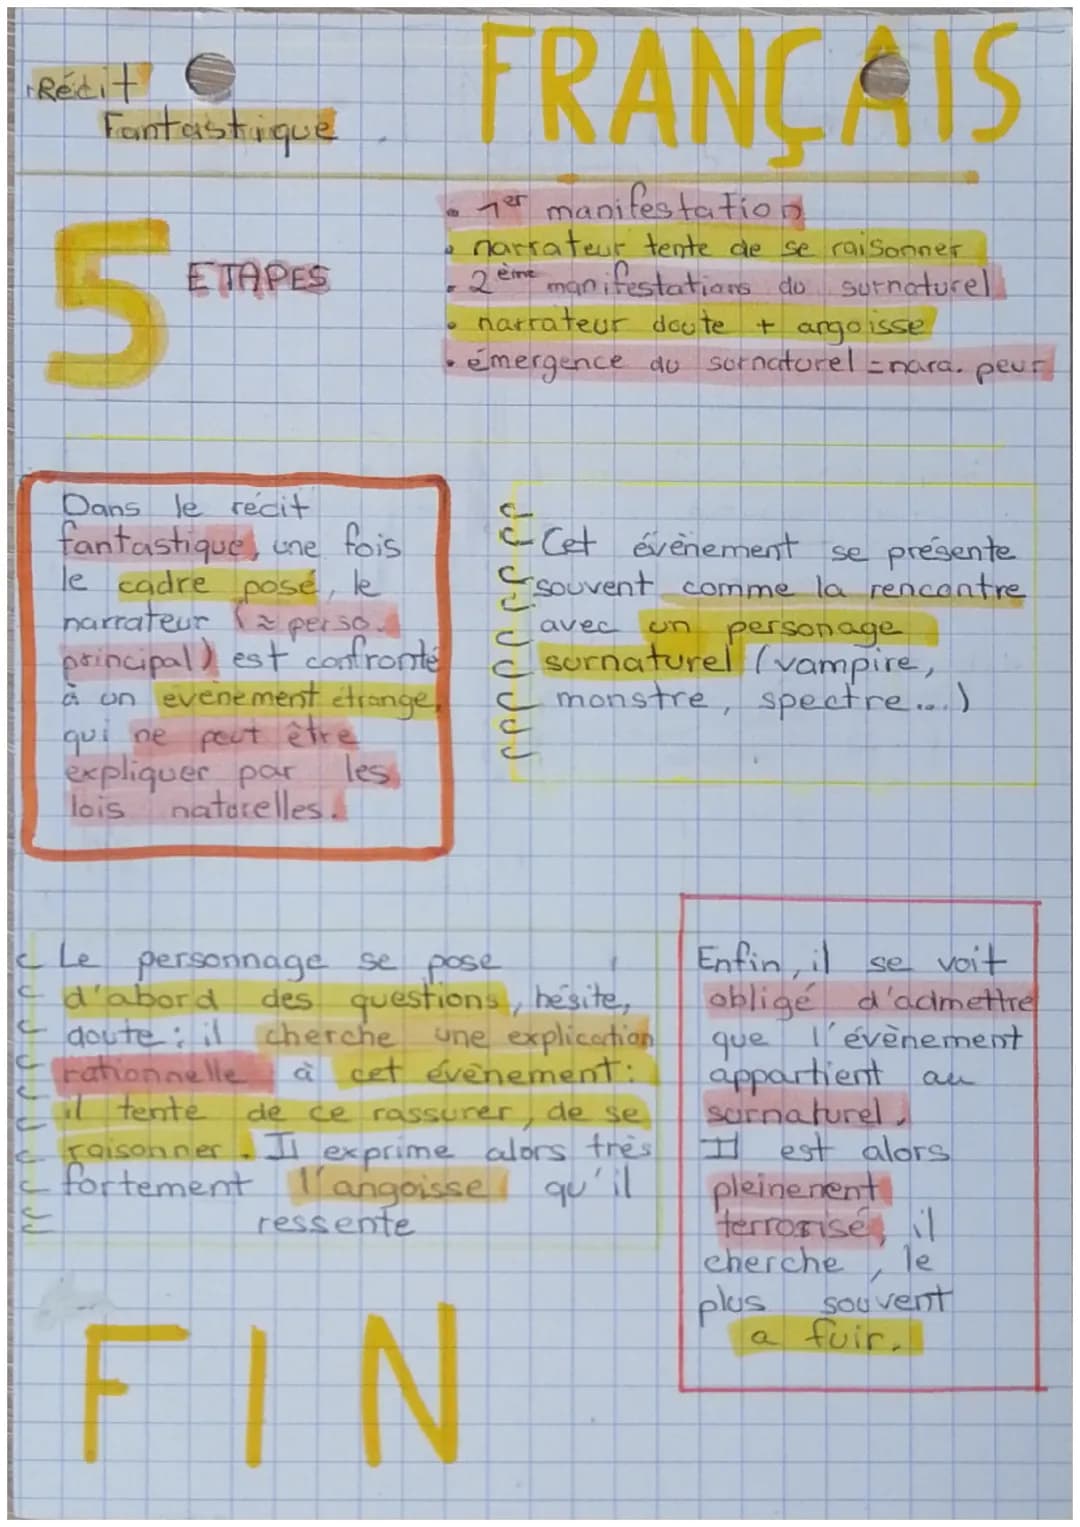 Récit
Fantastique
FRANÇAIS
5
ETAPES
• 1er manifestation
• narrateur tente de se raisonner
• 2ème manifestations du surnaturel
• narrateur doute + angoisse
• émergence du surnaturel = nara. peur
Dans le récit
fantastique, une fois
le cadre posé, le
narrateur (≈ perso.
principal) est confronté
à un evènement étrange,
qui ne peut être
expliquer par les
lois naturelles.
Cet évènement se présente
souvent comme la rencontre
avec un personage
surnaturel (vampire,
monstre, spectre...)
Le personnage se pose
d'abord des questions, hésite,
doute; il cherche une explication
rationnelle à cet évènement:
il tente de ce rassurer, de se
raisonner. Il exprime alors très
fortement l'angoisse qu'il
ressente
Enfin, il se voit
obligé d'admettre
que l'évènement
appartient au
surnaturel.
Il est alors
pleinement
terrorisé, il
cherche, le
plus souvent
a fuir.
FIN